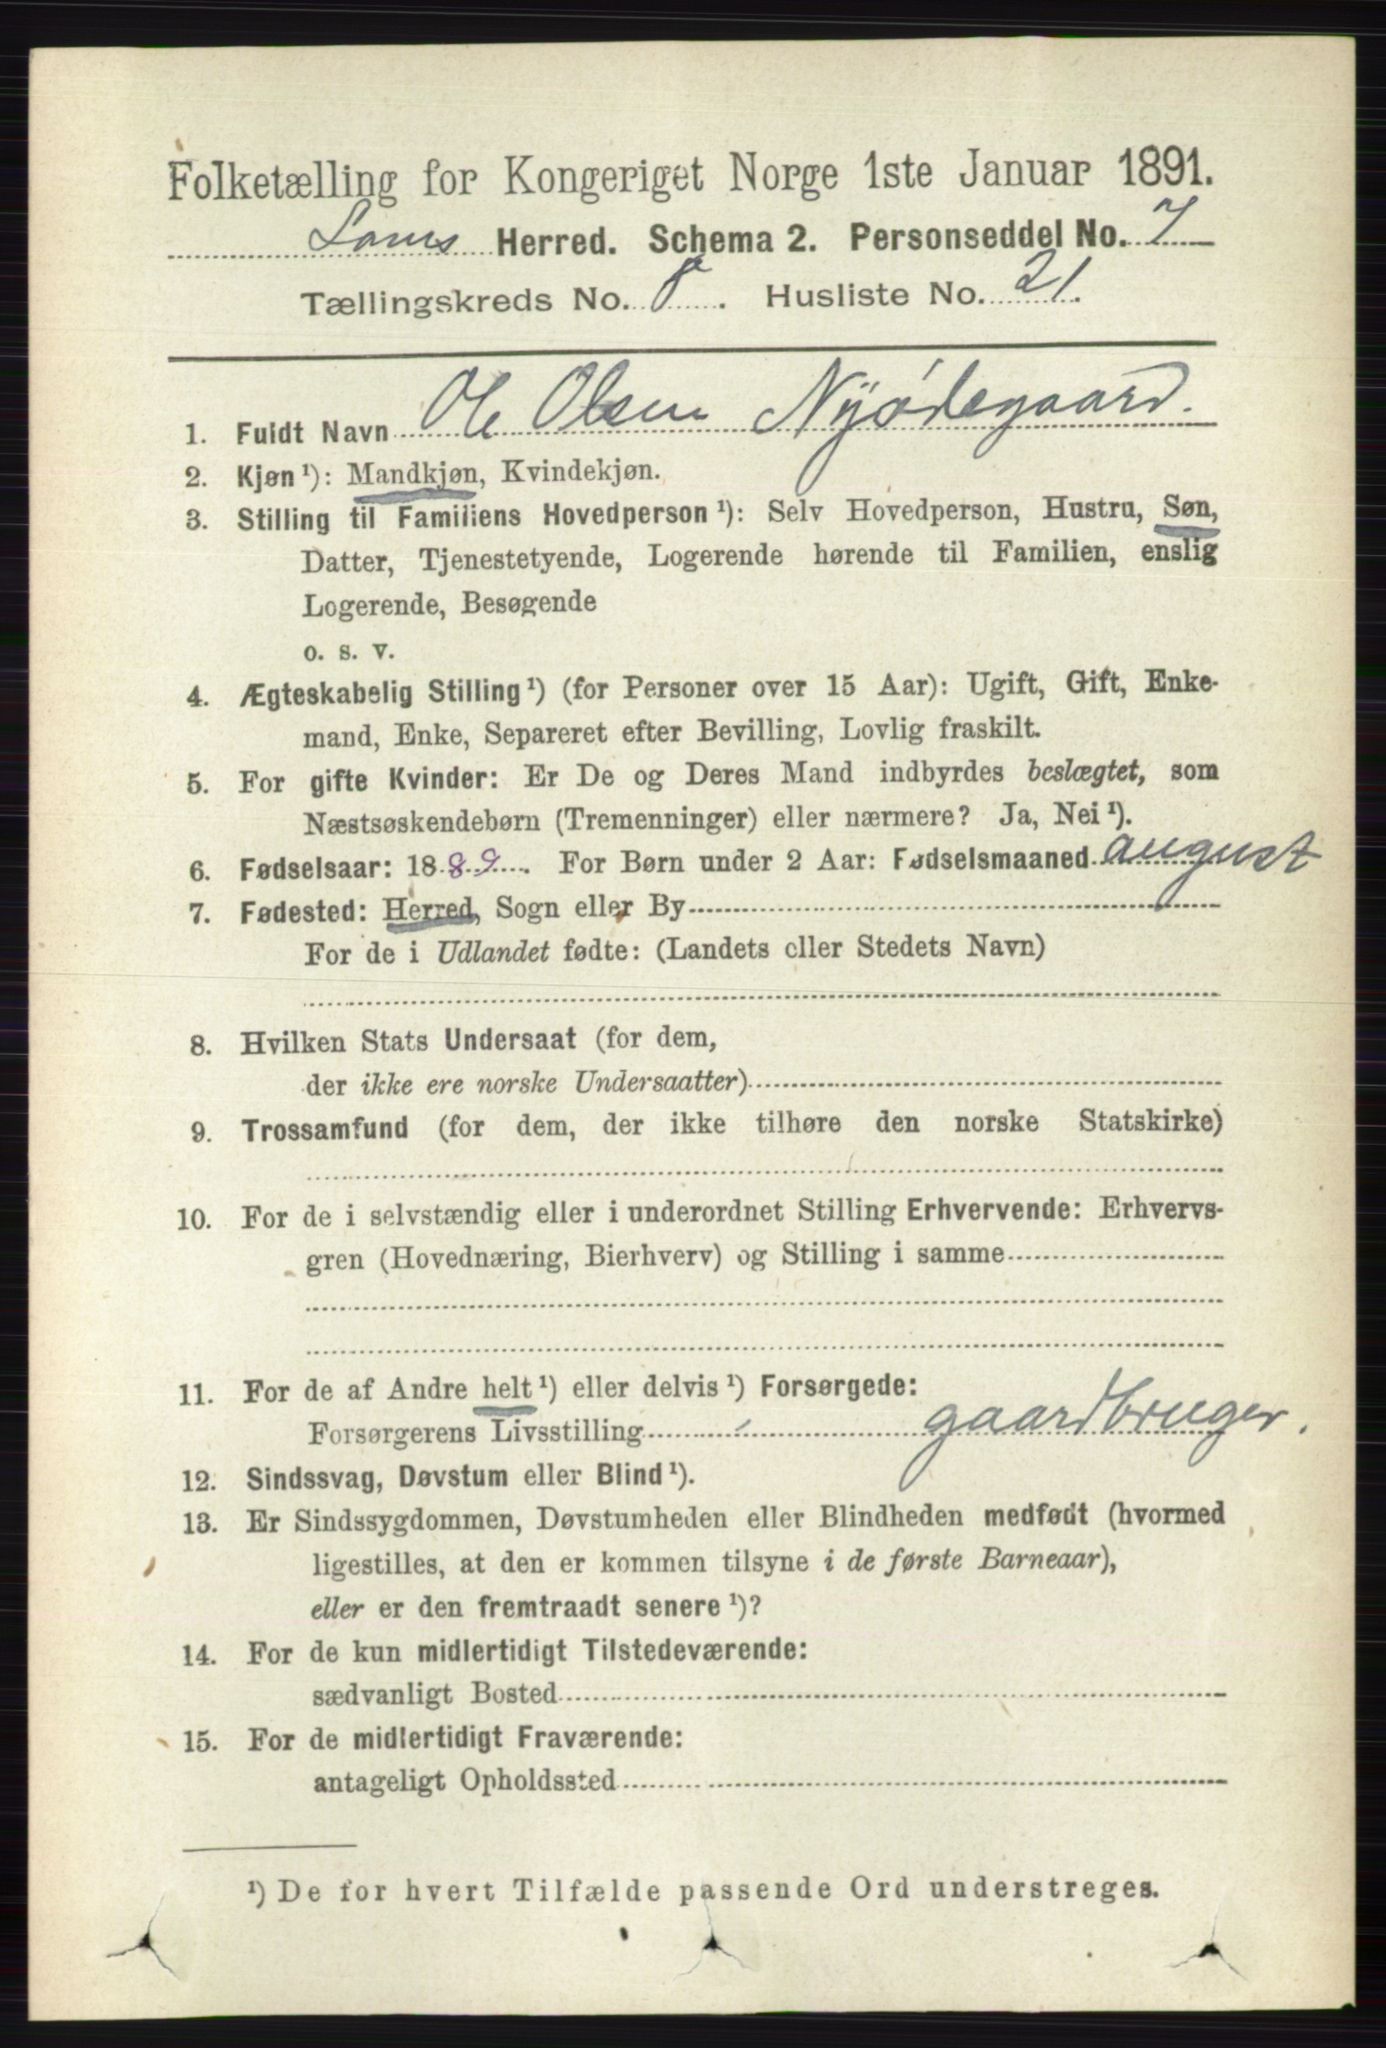 Folketælling for Kongeriget Norge 1ste Januar 1891.
Loms Herred. Schema 2. Personseddel No. 7
Tællingskreds No. 8. Husliste No. 21.
1. Fuldt Navn Ole Olsen Nyødegaard.
2. Kjøn ¹): Mandkjøn, Kvindekjøn.
3. Stilling til Familiens Hovedperson ¹): Selv Hovedperson, Hustru, Søn,
Datter, Tjenestetyende, Logerende hørende til Familien, enslig
Logerende, Besøgende
o. s. v.
4. Ægteskabelig Stilling ¹) (for Personer over 15 Aar): Ugift, Gift, Enke-
mand, Enke, Separeret efter Bevilling, Lovlig fraskilt.
5. For gifte Kvinder: Er De og Deres Mand indbyrdes beslægtet, som
Næstsøskendebørn (Tremenninger) eller nærmere? Ja, Nei ¹).
6. Fødselsaar: 1889. For Børn under 2 Aar: Fødselsmaaned august
7. Fødested: Herred, Sogn eller By
For de i Udlandet fødte: (Landets eller Stedets Navn)
8. Hvilken Stats Undersaat (for dem,
der ikke ere norske Undersaatter)
9. Trossamfund (for dem, der ikke tilhøre den norske Statskirke)
10. For de i selvstændig eller i underordnet Stilling Erhvervende: Erhvervs-
gren (Hovednæring, Bierhverv) og Stilling i samme
11. For de af Andre helt ¹) eller delvis ¹) Forsørgede:
Forsørgerens Livsstilling gaardbruger.
12. Sindssvag, Døvstum eller Blind ¹).
13. Er Sindssygdommen, Døvstumheden eller Blindheden medfødt (hvormed
ligestilles, at den er kommen tilsyne i de første Barneaar),
eller er den fremtraadt senere ¹)?
14. For de kun midlertidigt Tilstedeværende:
sædvanligt Bosted
15. For de midlertidigt Fraværende:
antageligt Opholdssted
¹) De for hvert Tilfælde passende Ord understreges.